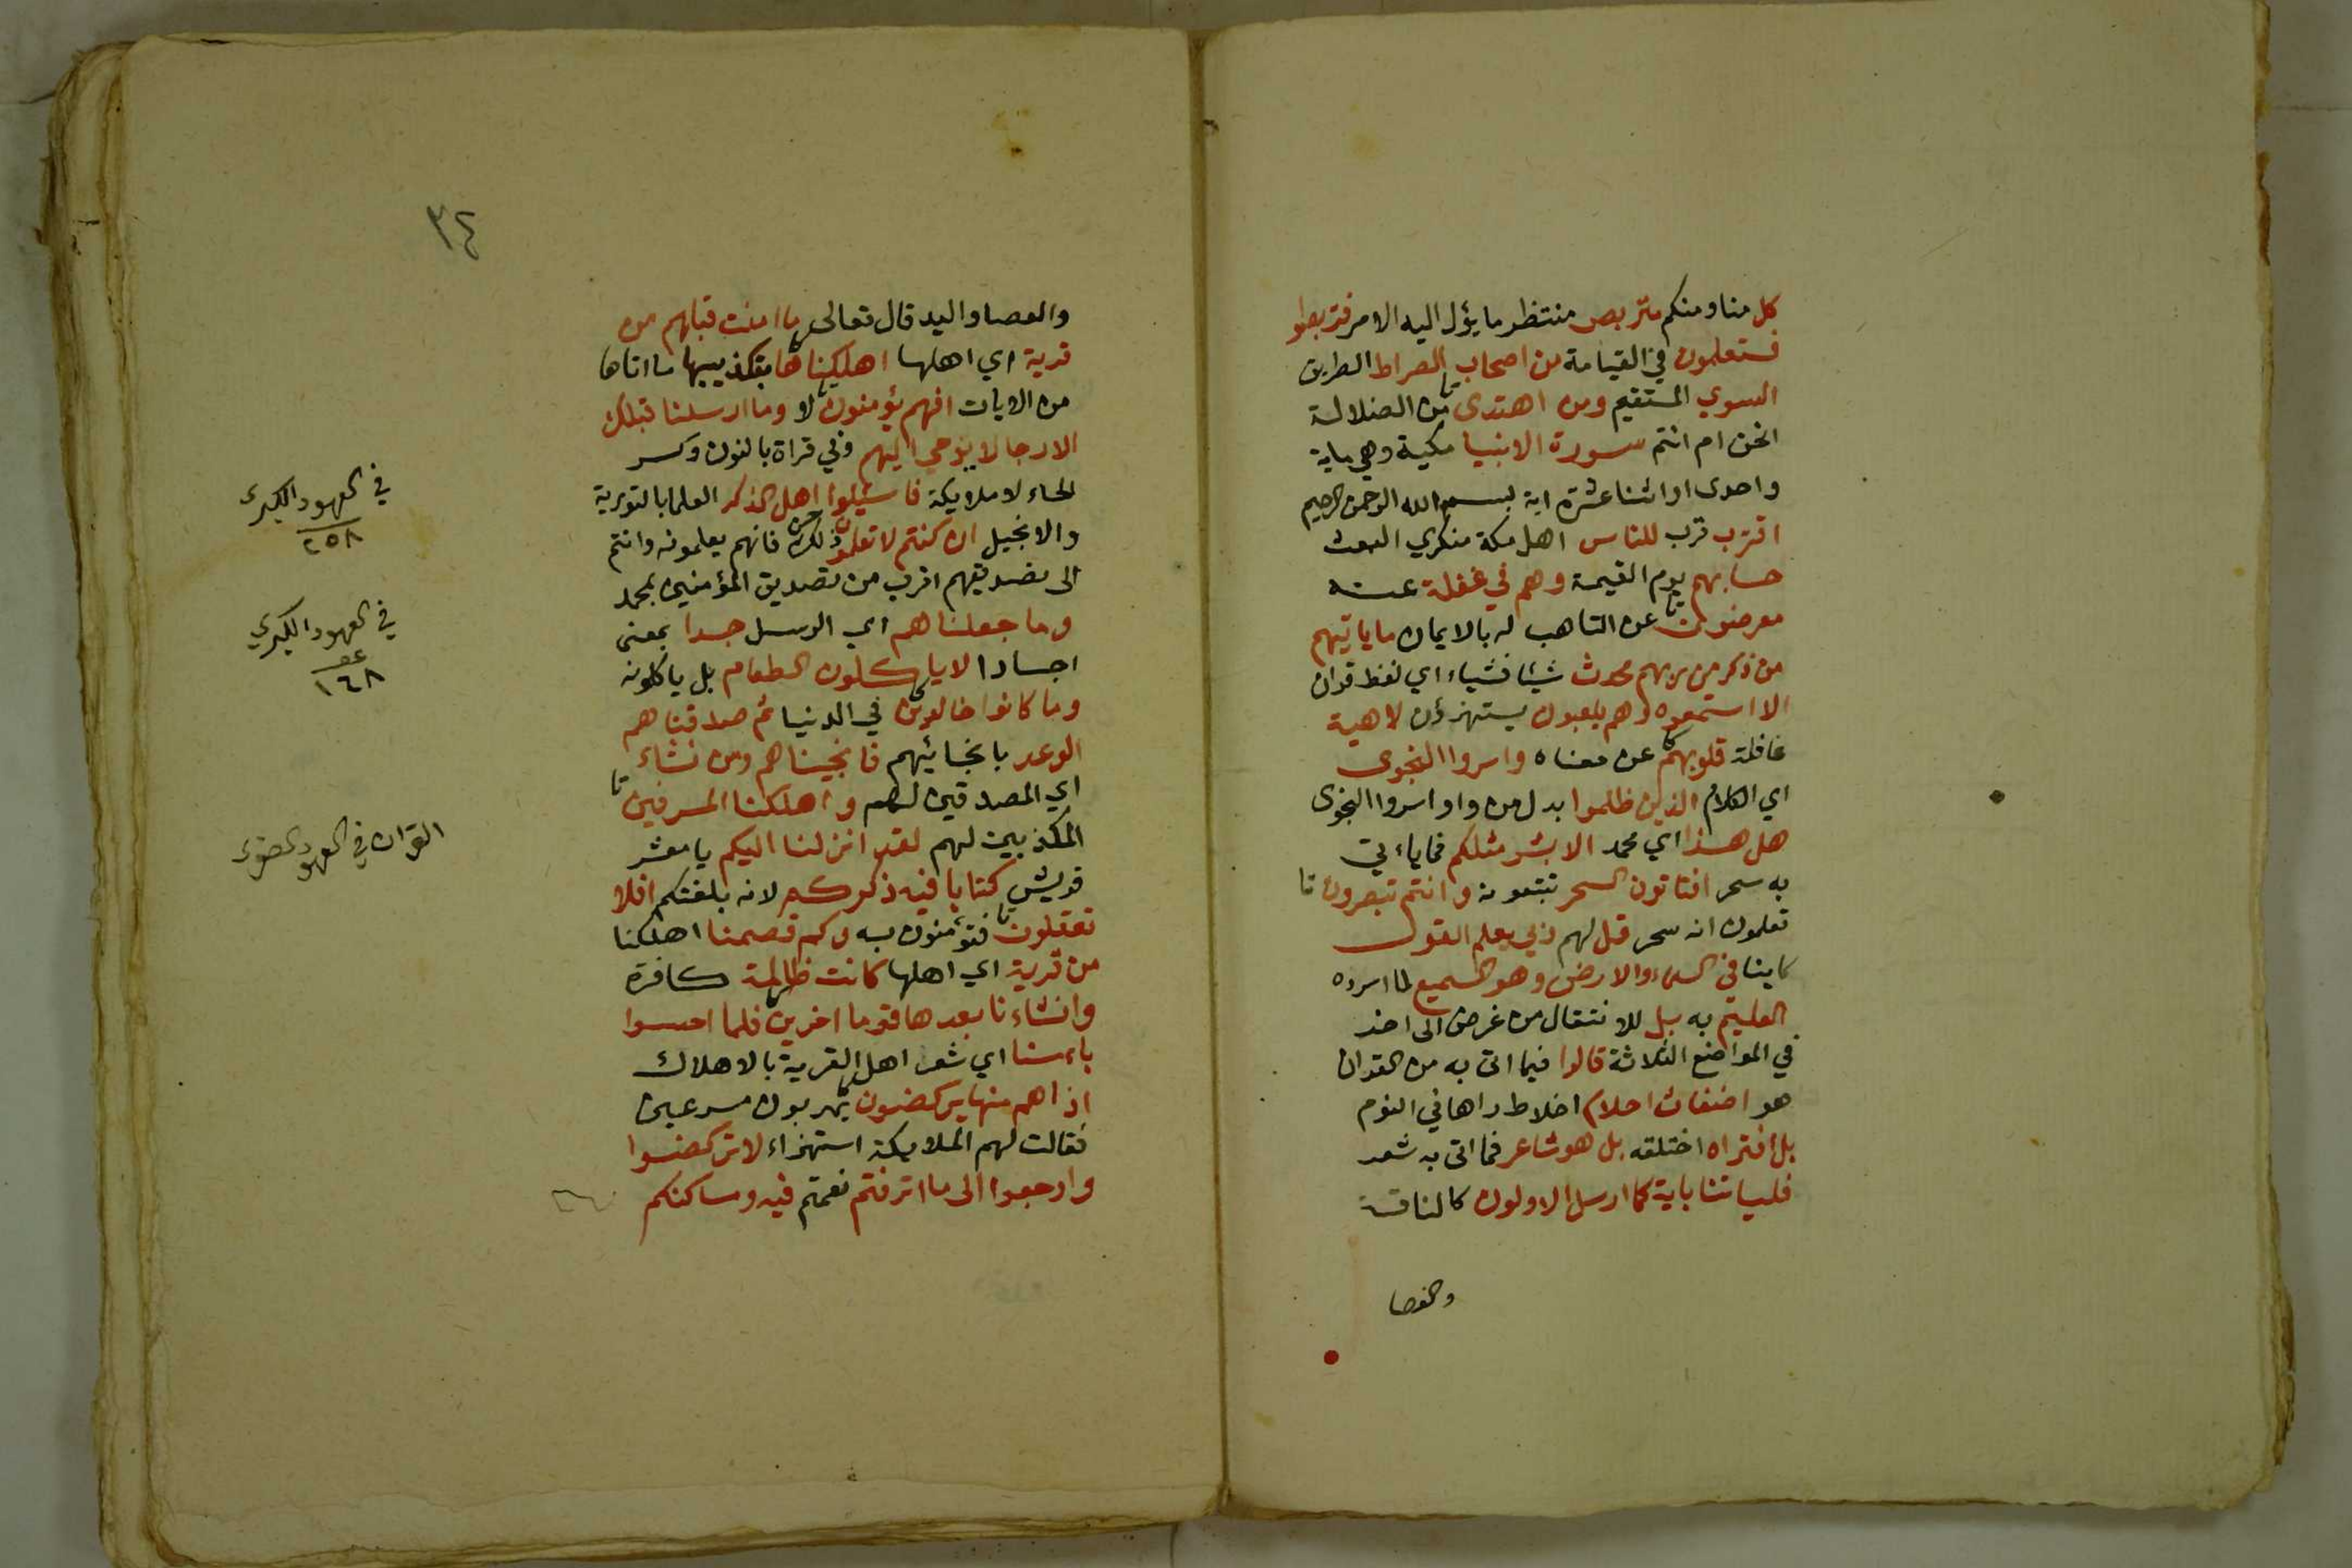 كل منا ومنكم متربص منتظر ما يؤل اليه الامر فتربصوا
فستعلمون في القيامة من اصحاب الصراط الطريق
السوي المستقيم ومن اهتدى من الضلالة
انحن ام انتم سورة الانبيا مكية وهي ماية
واحدى او اثنا عشرة اية بسم الله الرحمن الرحيم
اقترب قرب للناس اهل مكة منكري البعث
حسابهم يوم القيمة وهم في غفلة عنه
معرضون عن التاهب له بالايمان ما ياتيهم
من ذكر من ربهم محدث شيئا فشياء اي لفظ قران
الا استمعوه وهم يلعبون يستهزؤن لاهية
غافلة قلوبهم عن معناه واسروا النجوى
اي الكلام الذين ظلموا بدل من واو اسروا النجوى
هل هذا اي محمد الا بشر مثلكم فما ياءتي
به سحر افتاتون السحر تتبعونه وانتم تبصرون
تعلمون انه سحر قل لهم ربي يعلم القول
كاينا في السماء والارض وهو السميع لما اسروه
العليم به بل للانتقال من غرض الى اخر
في المواضع الثلاثة قالوا فيما اتى به من القران
هو اضغاث احلام اخلاط راها في النوم
بل افتراه اختلقه بل هو شاعر فما اتى به شعر
فلياتنا باية كما ارسل الاولون كالناقة
والعصا
٣٤
والعصا واليد قال تعالى ما امنت قبلهم من
قرية اي اهلها اهلكناها بتكذيبها ما اتاها
من الايات افهم يؤمنون لا وما ارسلنا قبلك
الا رجالا يوحي اليهم وفي قراة بالنون وكسر
الحاء لا ملايكة فاسئيلوا اهل الذكر العلما بالتورية
والانجيل ان كنتم لا تعلمون ذلك فانهم يعلمونه وانتم
الى تصديقهم اقرب من تصديق المؤمنين بمحمد
وما جعلناهم اي الرسل جسدا بمعنى
اجسادا لا ياكلون الطعام بل ياكلونه
وما كانوا خالدين في الدنيا ثم صدقناهم
الوعد بانجائيهم فانجيناهم ومن نشاء
اي المصدقين لهم واهلكنا المسرفين
المكذبين لهم لقد انزلنا اليكم يا معشر
قريش كتابا فيه ذكركم لانه بلغتكم افلا
تعقلون فتؤمنون به وكم قصمنا اهلكنا
من قرية اي اهلها كانت ظالمة كافرة
وانشاءنا بعدها قوما اخرين فلما احسوا
باءسنا اي شعر اهل القرية بالاهلاك
اذا هم منها يركضون يهربون مسرعين
فقالت لهم الملايكة استهزاء لا تركضوا
وارجعوا الى ما اترفتم نعمتم فيه ومساكنكم
في العهود الكبرى
٢٥٨
في العهود الكبرى
١٦٨
القران في العهود